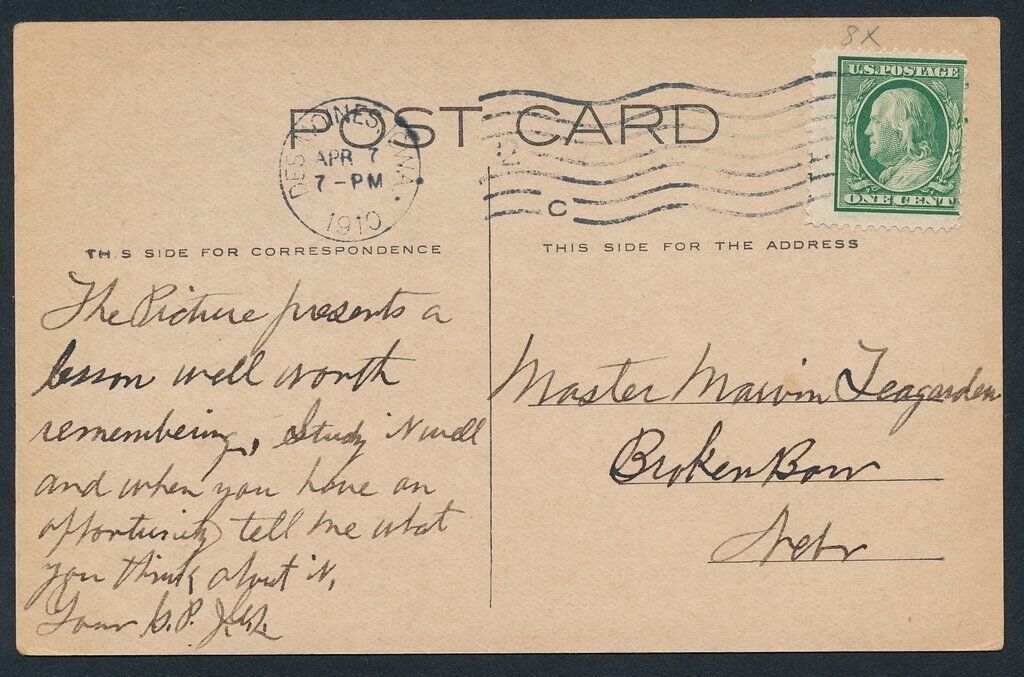 8X
U.S.POSTAGE
ONE CENT
POST CARD
DES MOINES, IOWA.
APR 7
7-PM
1910
C
TH.S SIDE FOR CORRESPONDENCE
THIS SIDE FOR THE ADDRESS
The Picture presents a
lesson well worth
remembering, Study it well
and when you have an
opportunity tell me what
you think about it,
Your G.P.
Master Marvin Teagarden
Broken Bow
Nebr